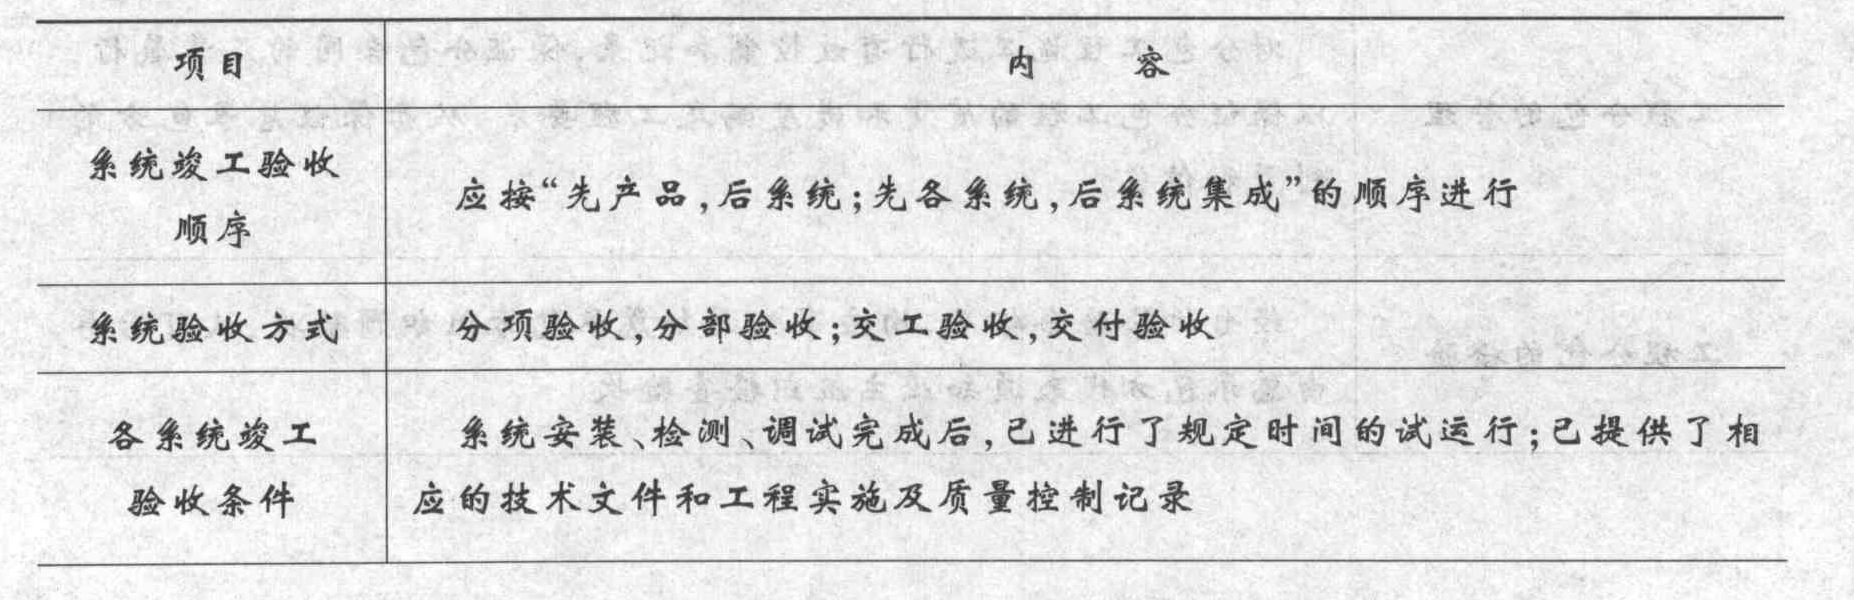 项目 内 容
系统竣工验收
顺序
应按“先产品,后系统;先各系统,后系统集成”的顺序进行
系统验收方式 分项验收,分部验收;交工验收,交付验收
各系统竣工
验收条件
系统安装、检测、调试完成后,已进行了规定时间的试运行;已提供了相
应的技术文件和工程实施及质量控制记录